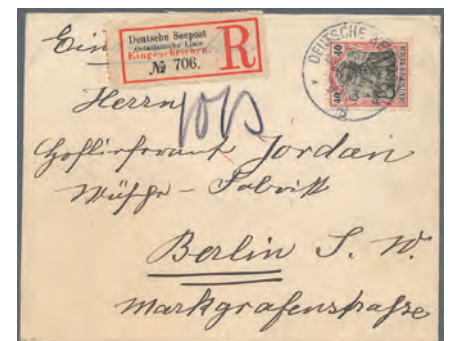 Ein
Deutsche Seepost
Ostasiatische Linie
Eingeschrieben.
№ 706.
R
DEUTSCHE
40 40
DEUTSCHES REICH
Herrn
Hoflieferant Jordan
Wäsche-Fabrik
Berlin S. W.
Markgrafenstraße